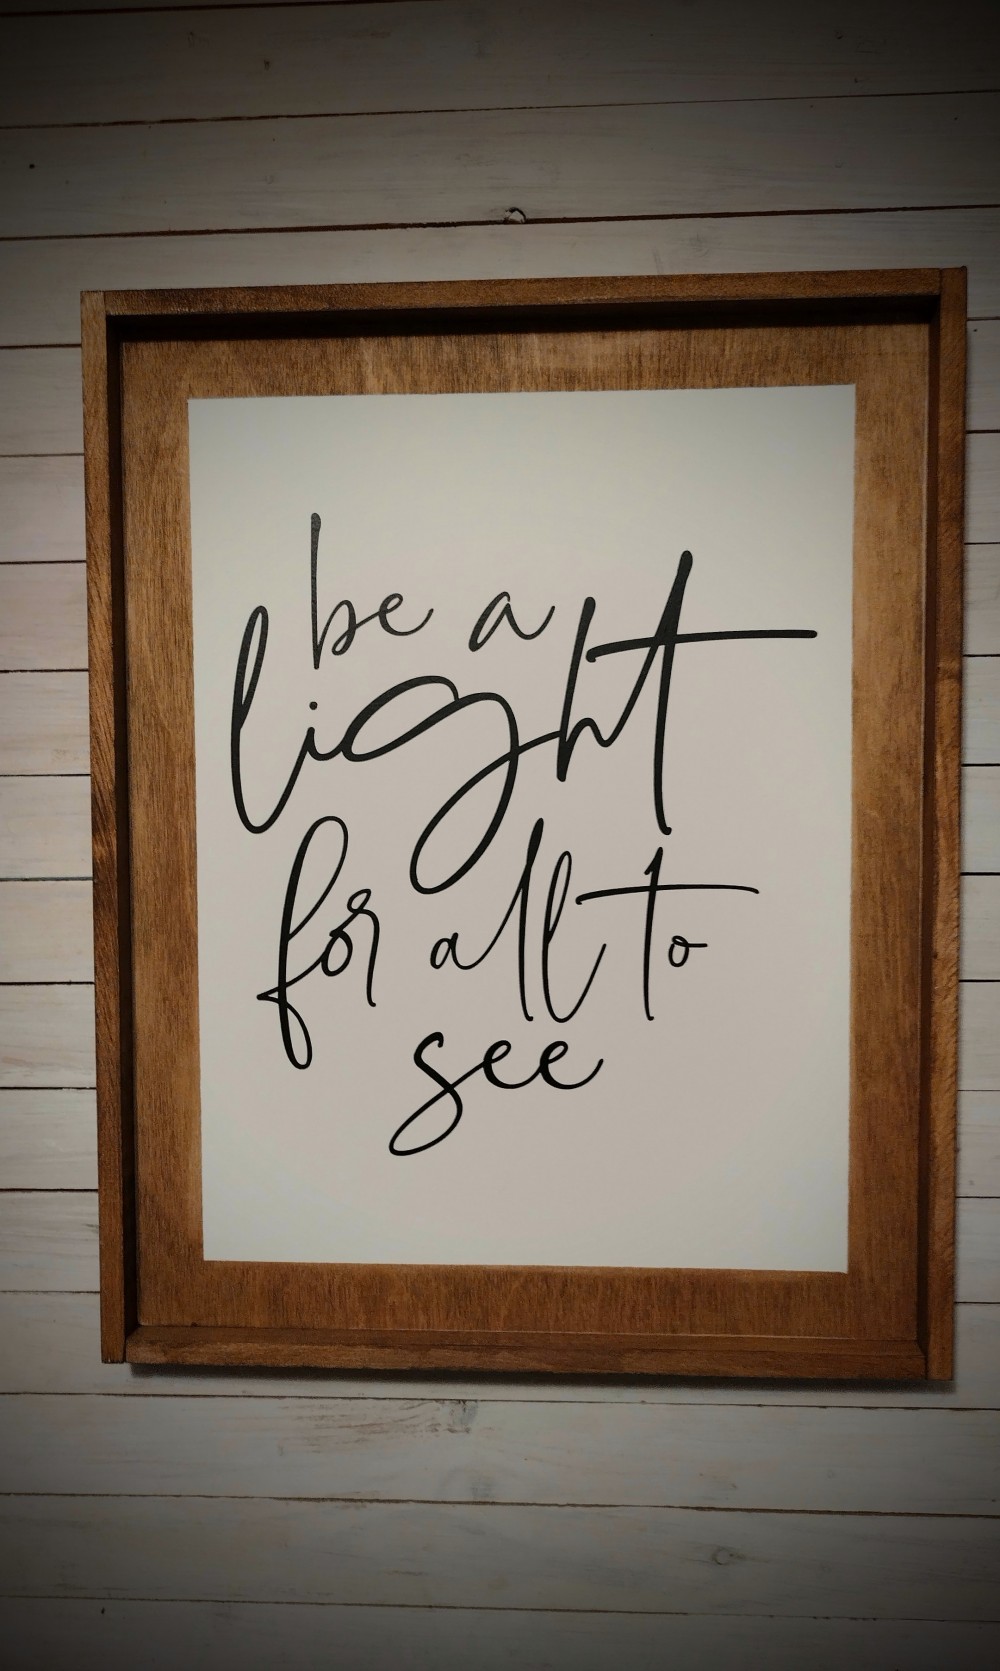 be a
light
for all to
see